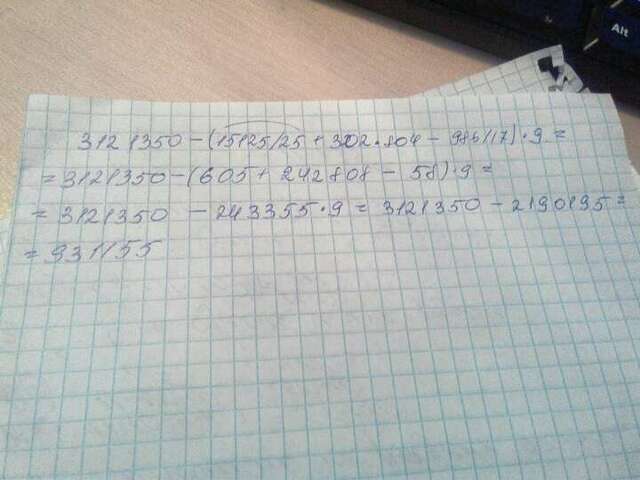 Alt
3121350 - (15125/25 + 302·804 - 986/17)·9 =
= 3121350 - (605 + 242808 - 58)·9 =
= 3121350 - 243355·9 = 3121350 - 2190195 =
= 931155